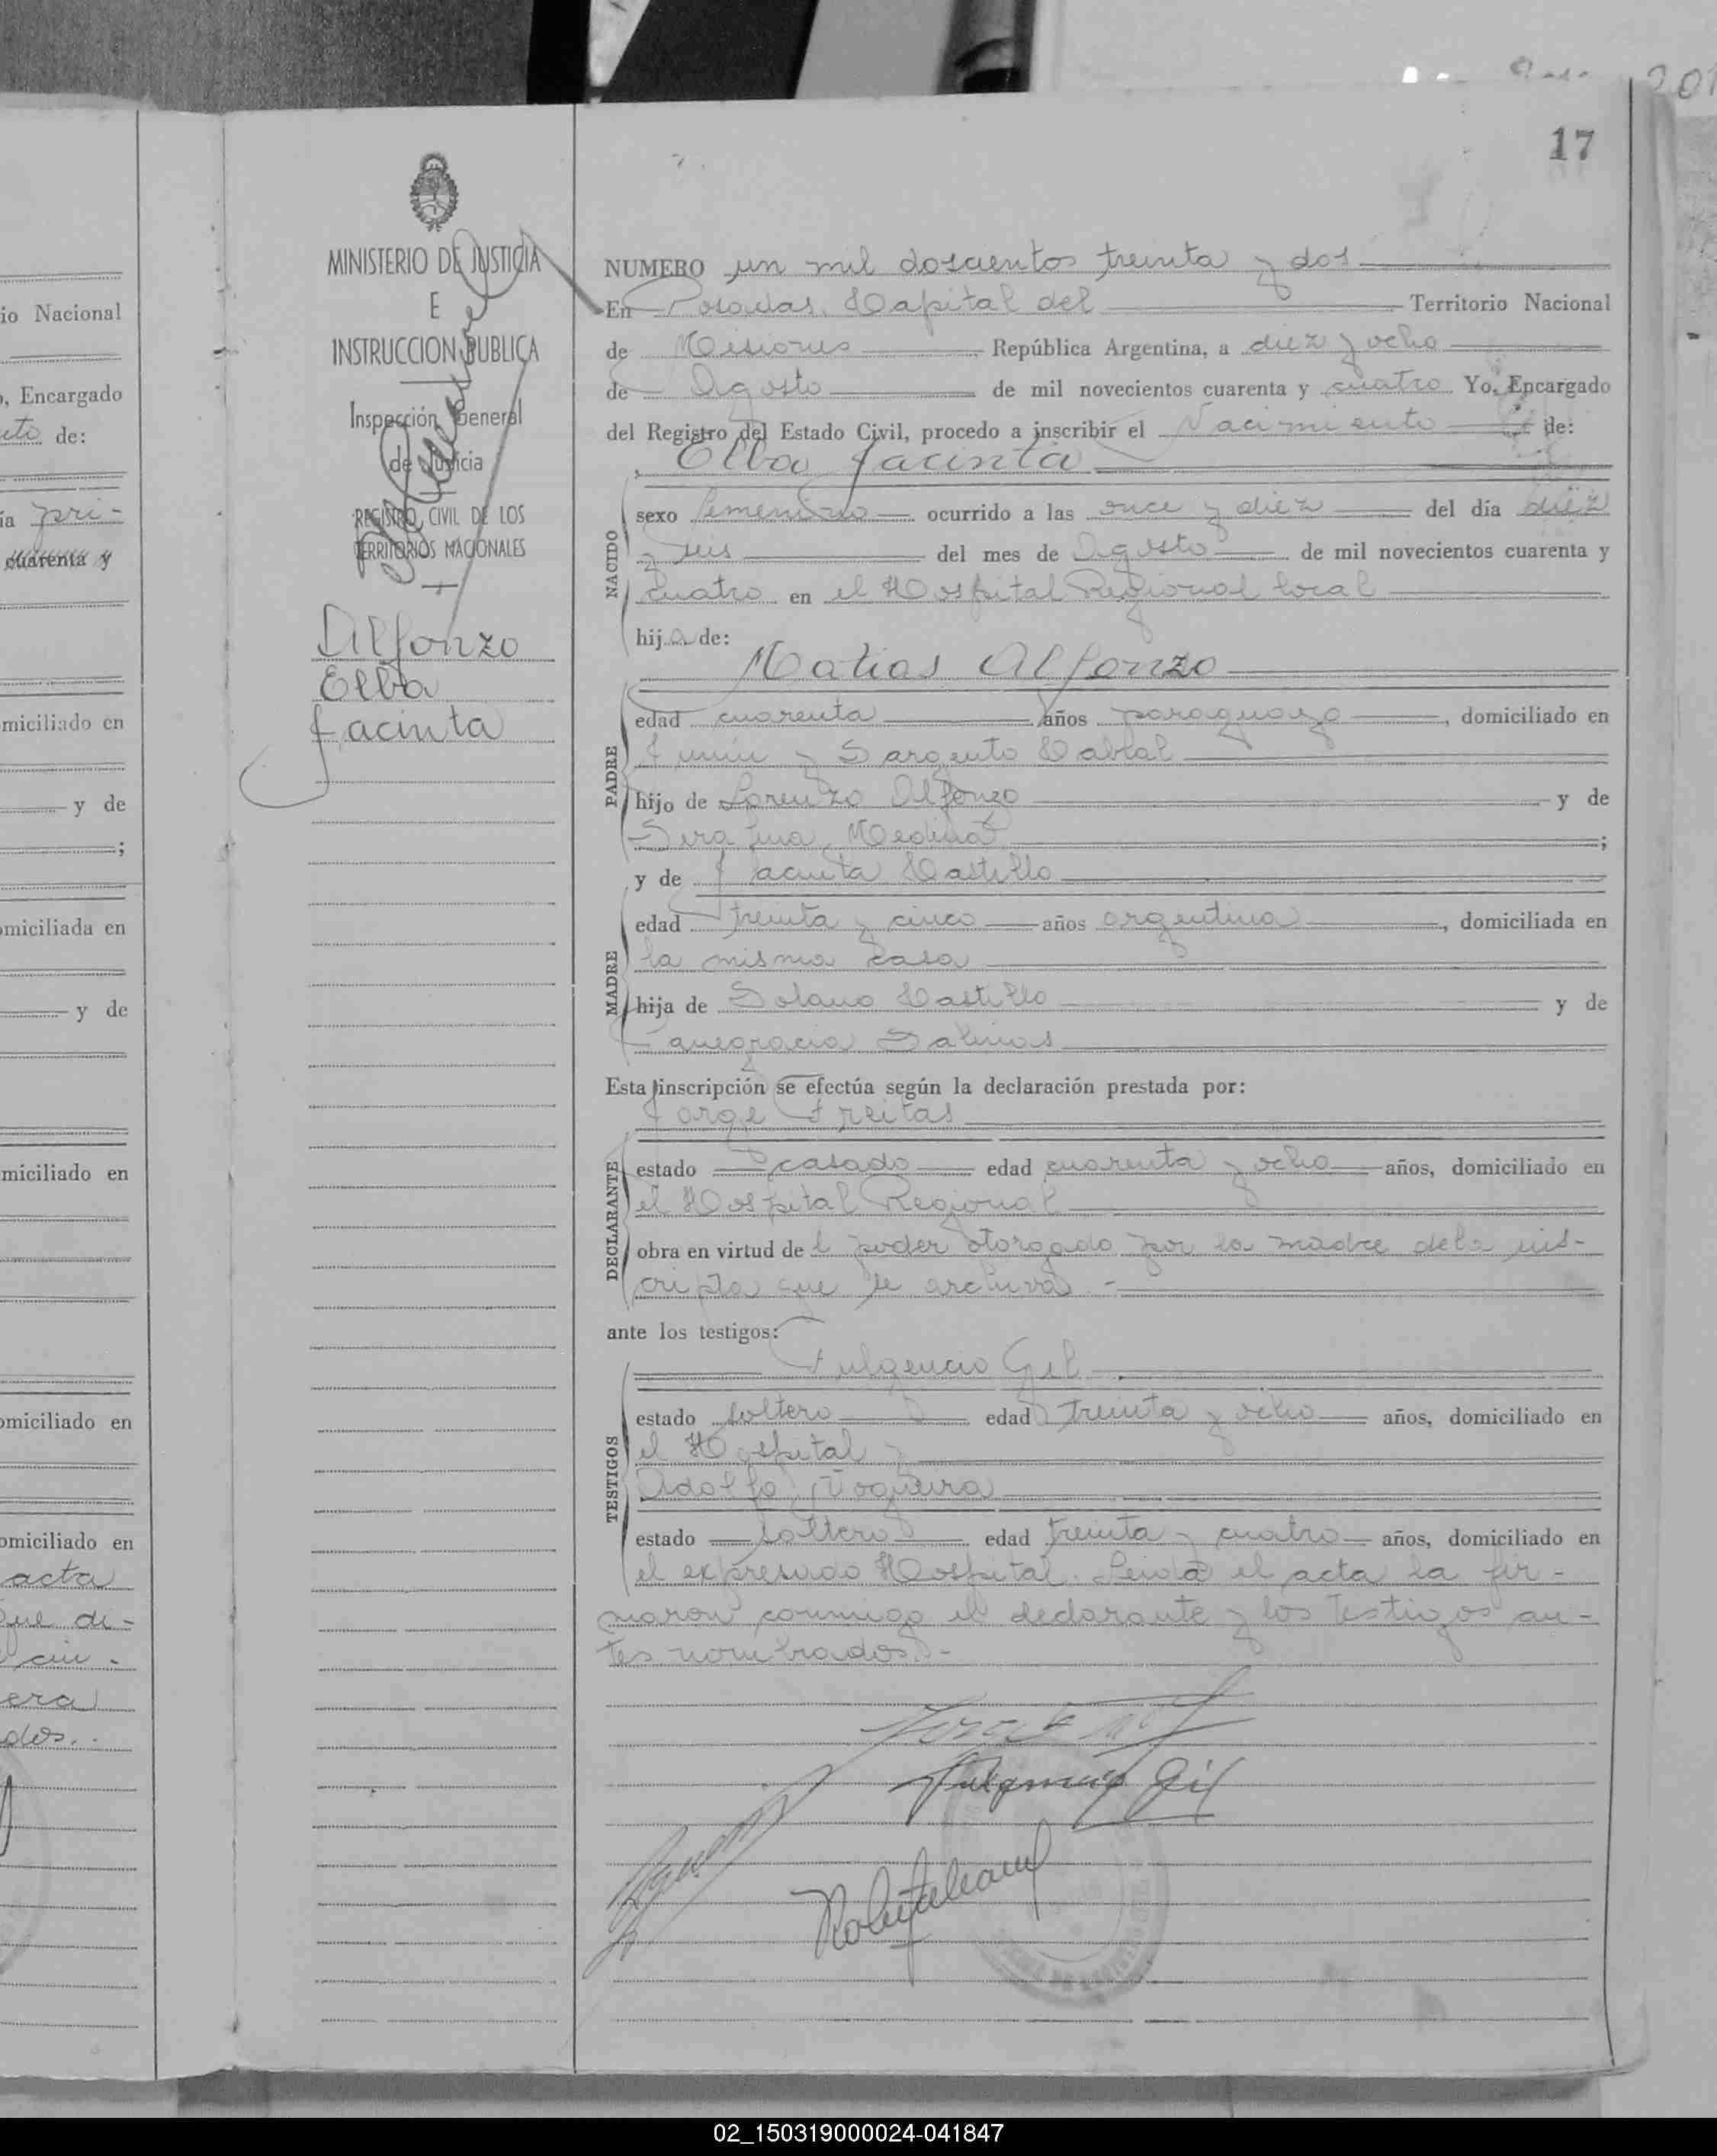 io Nacional
, Encargado
de:
ía pri-
cuarenta y
miciliado en
y de
;
omiciliada en
y de
miciliado en
omiciliado en
omiciliado en
acta
que di-
cin-
era
dos.
17
MINISTERIO DE JUSTICIA
E
INSTRUCCION PUBLICA
Inspección General
de Justicia
REGISTRO CIVIL DE LOS
TERRITORIOS NACIONALES
Alfonzo
Elba
Jacinta
NUMERO un mil doscientos treinta y dos
En Posadas, Capital del Territorio Nacional
de Misiones República Argentina, a diez y ocho
de Agosto de mil novecientos cuarenta y cuatro Yo, Encargado
del Registro del Estado Civil, procedo a inscribir el Nacimiento de:
Elba Jacinta
NACIDO
sexo femenino ocurrido a las once y diez del día diez
y seis del mes de Agosto de mil novecientos cuarenta y
cuatro en el Hospital Regional local
hija de:
Matias Alfonzo
PADRE
edad cuarenta años paraguayo, domiciliado en
Junín y Sargento Cabral
hijo de Lorenzo Alfonzo y de
Serafina Medina;
y de Jacinta Castillo
MADRE
edad treinta y cinco años argentina, domiciliada en
la misma casa
hija de Solano Castillo y de
Salinas
Esta inscripción se efectúa según la declaración prestada por:
Jorge Freitas
DECLARANTE
estado casado edad cuarenta y ocho años, domiciliado en
el Hospital Regional
obra en virtud del poder otorgado por la madre de la ins-
cripta que se archiva.-
ante los testigos:
Fulgencio Gil
TESTIGOS
estado soltero edad treinta y ocho años, domiciliado en
el Hospital y
Adolfo Nogueira
estado soltero edad treinta y cuatro años, domiciliado en
el expresado Hospital. Leida el acta la fir-
maron conmigo el declarante y los testigos an-
tes nombrados.-
Fulgencio Gil
02_150319000024-041847